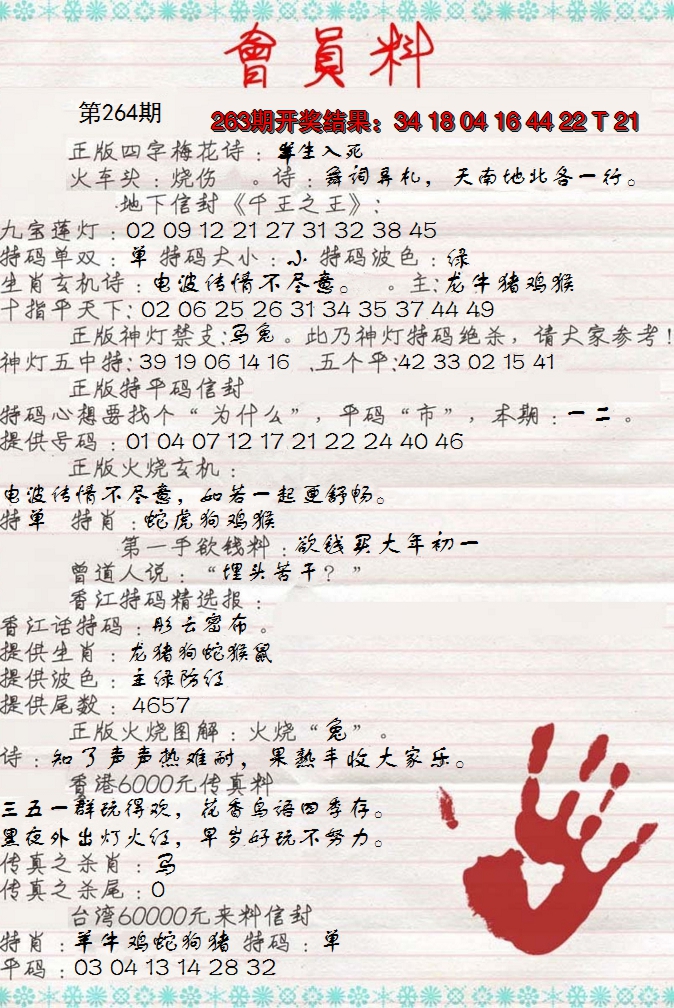 會員料
第264期
263期开奖结果：34 18 04 16 44 22 T 21
正版四字梅花诗：羊生入死
火车头：烧伤 。诗：舞词弄札，天南地北各一行。
地下信封《千王之王》：
九宝莲灯：02 09 12 21 27 31 32 38 45
特码单双：单 特码大小：小 特码波色：绿
生肖玄机诗：电波传情不尽意。 。主：龙牛猪鸡猴
十指平天下：02 06 25 26 31 34 35 37 44 49
正版神灯禁支：马兔。此乃神灯特码绝杀，请大家参考！
神灯五中特：39 19 06 14 16 .五个平：42 33 02 15 41
正版特平码信封
特码心想要找个“为什么”，平码“市”，本期：一二。
提供号码：01 04 07 12 17 21 22 24 40 46
正版火烧玄机：
电波传情不尽意，如若一起更舒畅。
特单 特肖：蛇虎狗鸡猴
第一手欲钱料：欲钱买大年初一
曾道人说：“埋头苦干？”
香江特码精选报：
香江话特码：彤云密布。
提供生肖：龙猪狗蛇猴鼠
提供波色：主绿防红
提供尾数：4657
正版火烧图解：火烧“兔”。
诗：知了声声热难耐，果熟丰收大家乐。
香港6000元传真料
三五一群玩得欢，花香鸟语四季存。
黑夜外出灯火红，早岁好玩不努力。
传真之杀肖：马
传真之杀尾：0
台湾60000元来料信封
特肖：羊牛鸡蛇狗猪 特码：单
平码：03 04 13 14 28 32